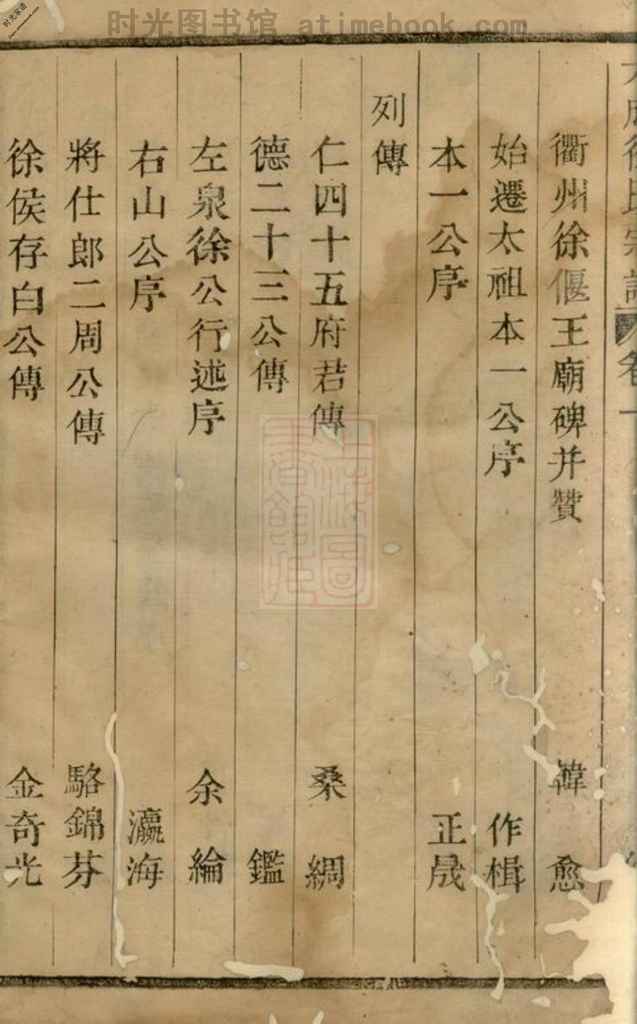 时光图书馆 atimebook.com
徐氏宗譜 卷一
衢州徐偃王廟碑并贊 韓愈
始遷太祖本一公序 作楫
本一公序 正晟
列傳
仁四十五府君傳 桑綢
德二十三公傳 鑑
左泉徐公行述序 余綸
右山公序 瀛海
將仕郎二周公傳 駱錦芬
徐侯存白公傳 金奇光